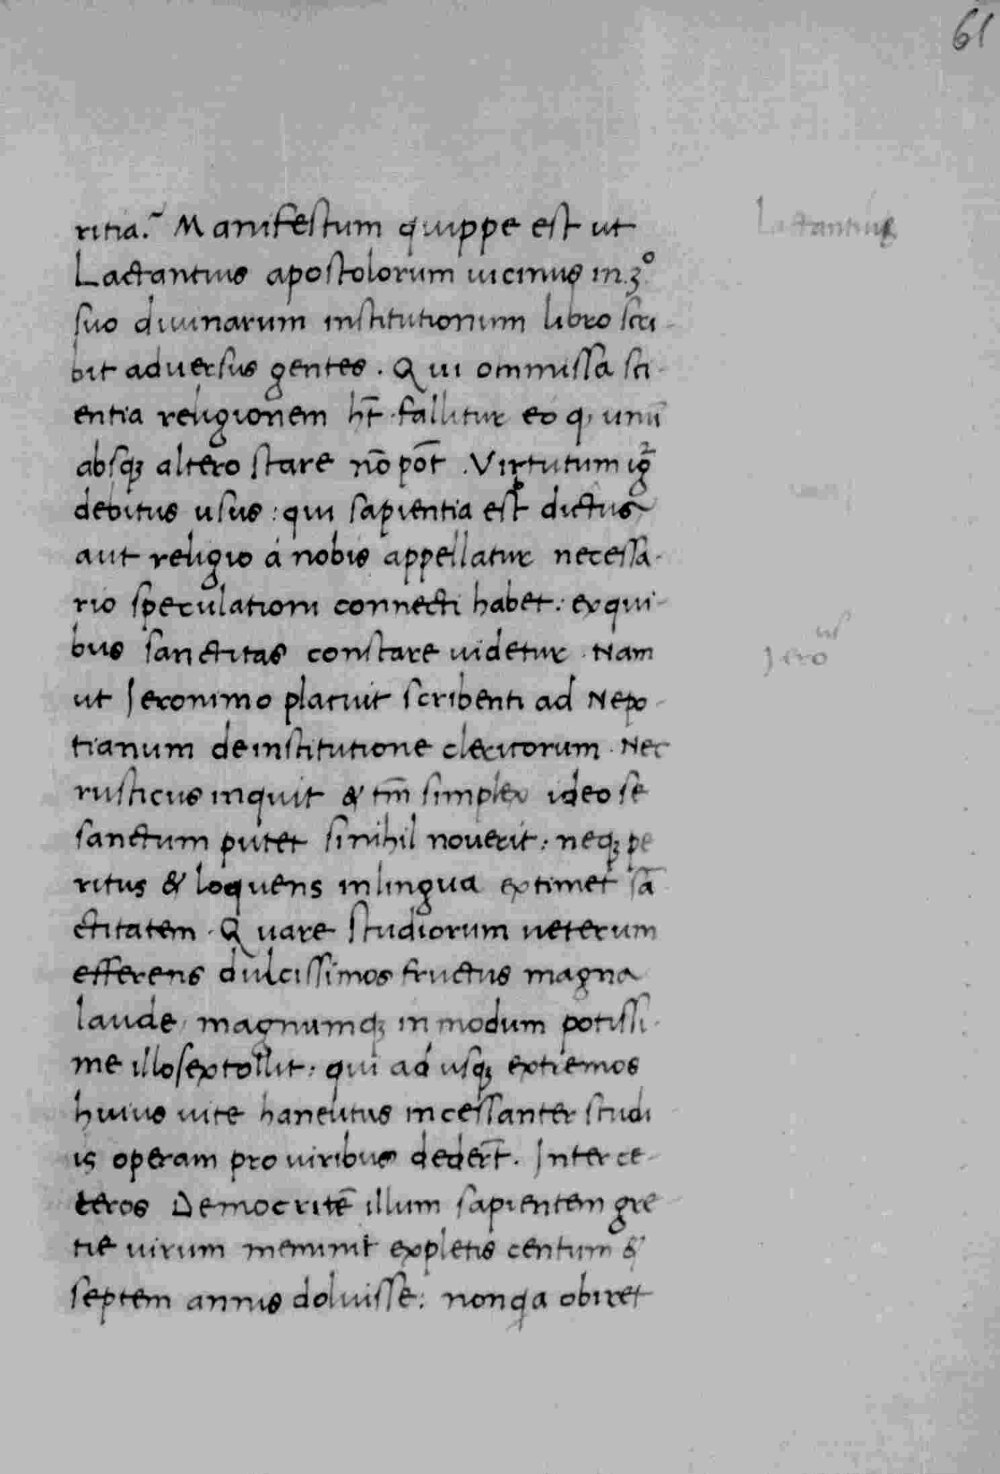 61
ritia. Manifestum quippe est ut
Lactantius
Lactantius apostolorum uicinus in.3º
suo diuinarum institutionum libro scri-
bit aduersus gentes. Qui ommissa sci-
entia religionem ht̄ fallitur eo q, unū
absq; altero stare nō pōt. Virtutum igr̄
debitus usus: qui sapientia est dictus
aut religio á nobis appellatur necessa-
rio speculationi connecti habet: ex qui-
bus sanctitas constare uidetur. Nam
Jero
ut Jeronimo placuit scribenti ad Nepo-
tianum de institutione clericorum. Nec
rusticus inquit & tm̄ simplex ideo se
sanctum putet si nihil nouerit: neq; pe
ritus & loquens in lingua extimet sā
ctitatem. Quare studiorum ueterum
efferens dulcissimos fructus magna
laude, magnumq; in modum potissi-
me illos extollit: qui ad usq; extremos
huius uite haneutus incessanter studi
is operam pro uiribus dedert̄. Inter ce-
teros Democritē illum sapientem gre
tie uirum meminit expletis centum &
septem annis doluisse: non qa obiret